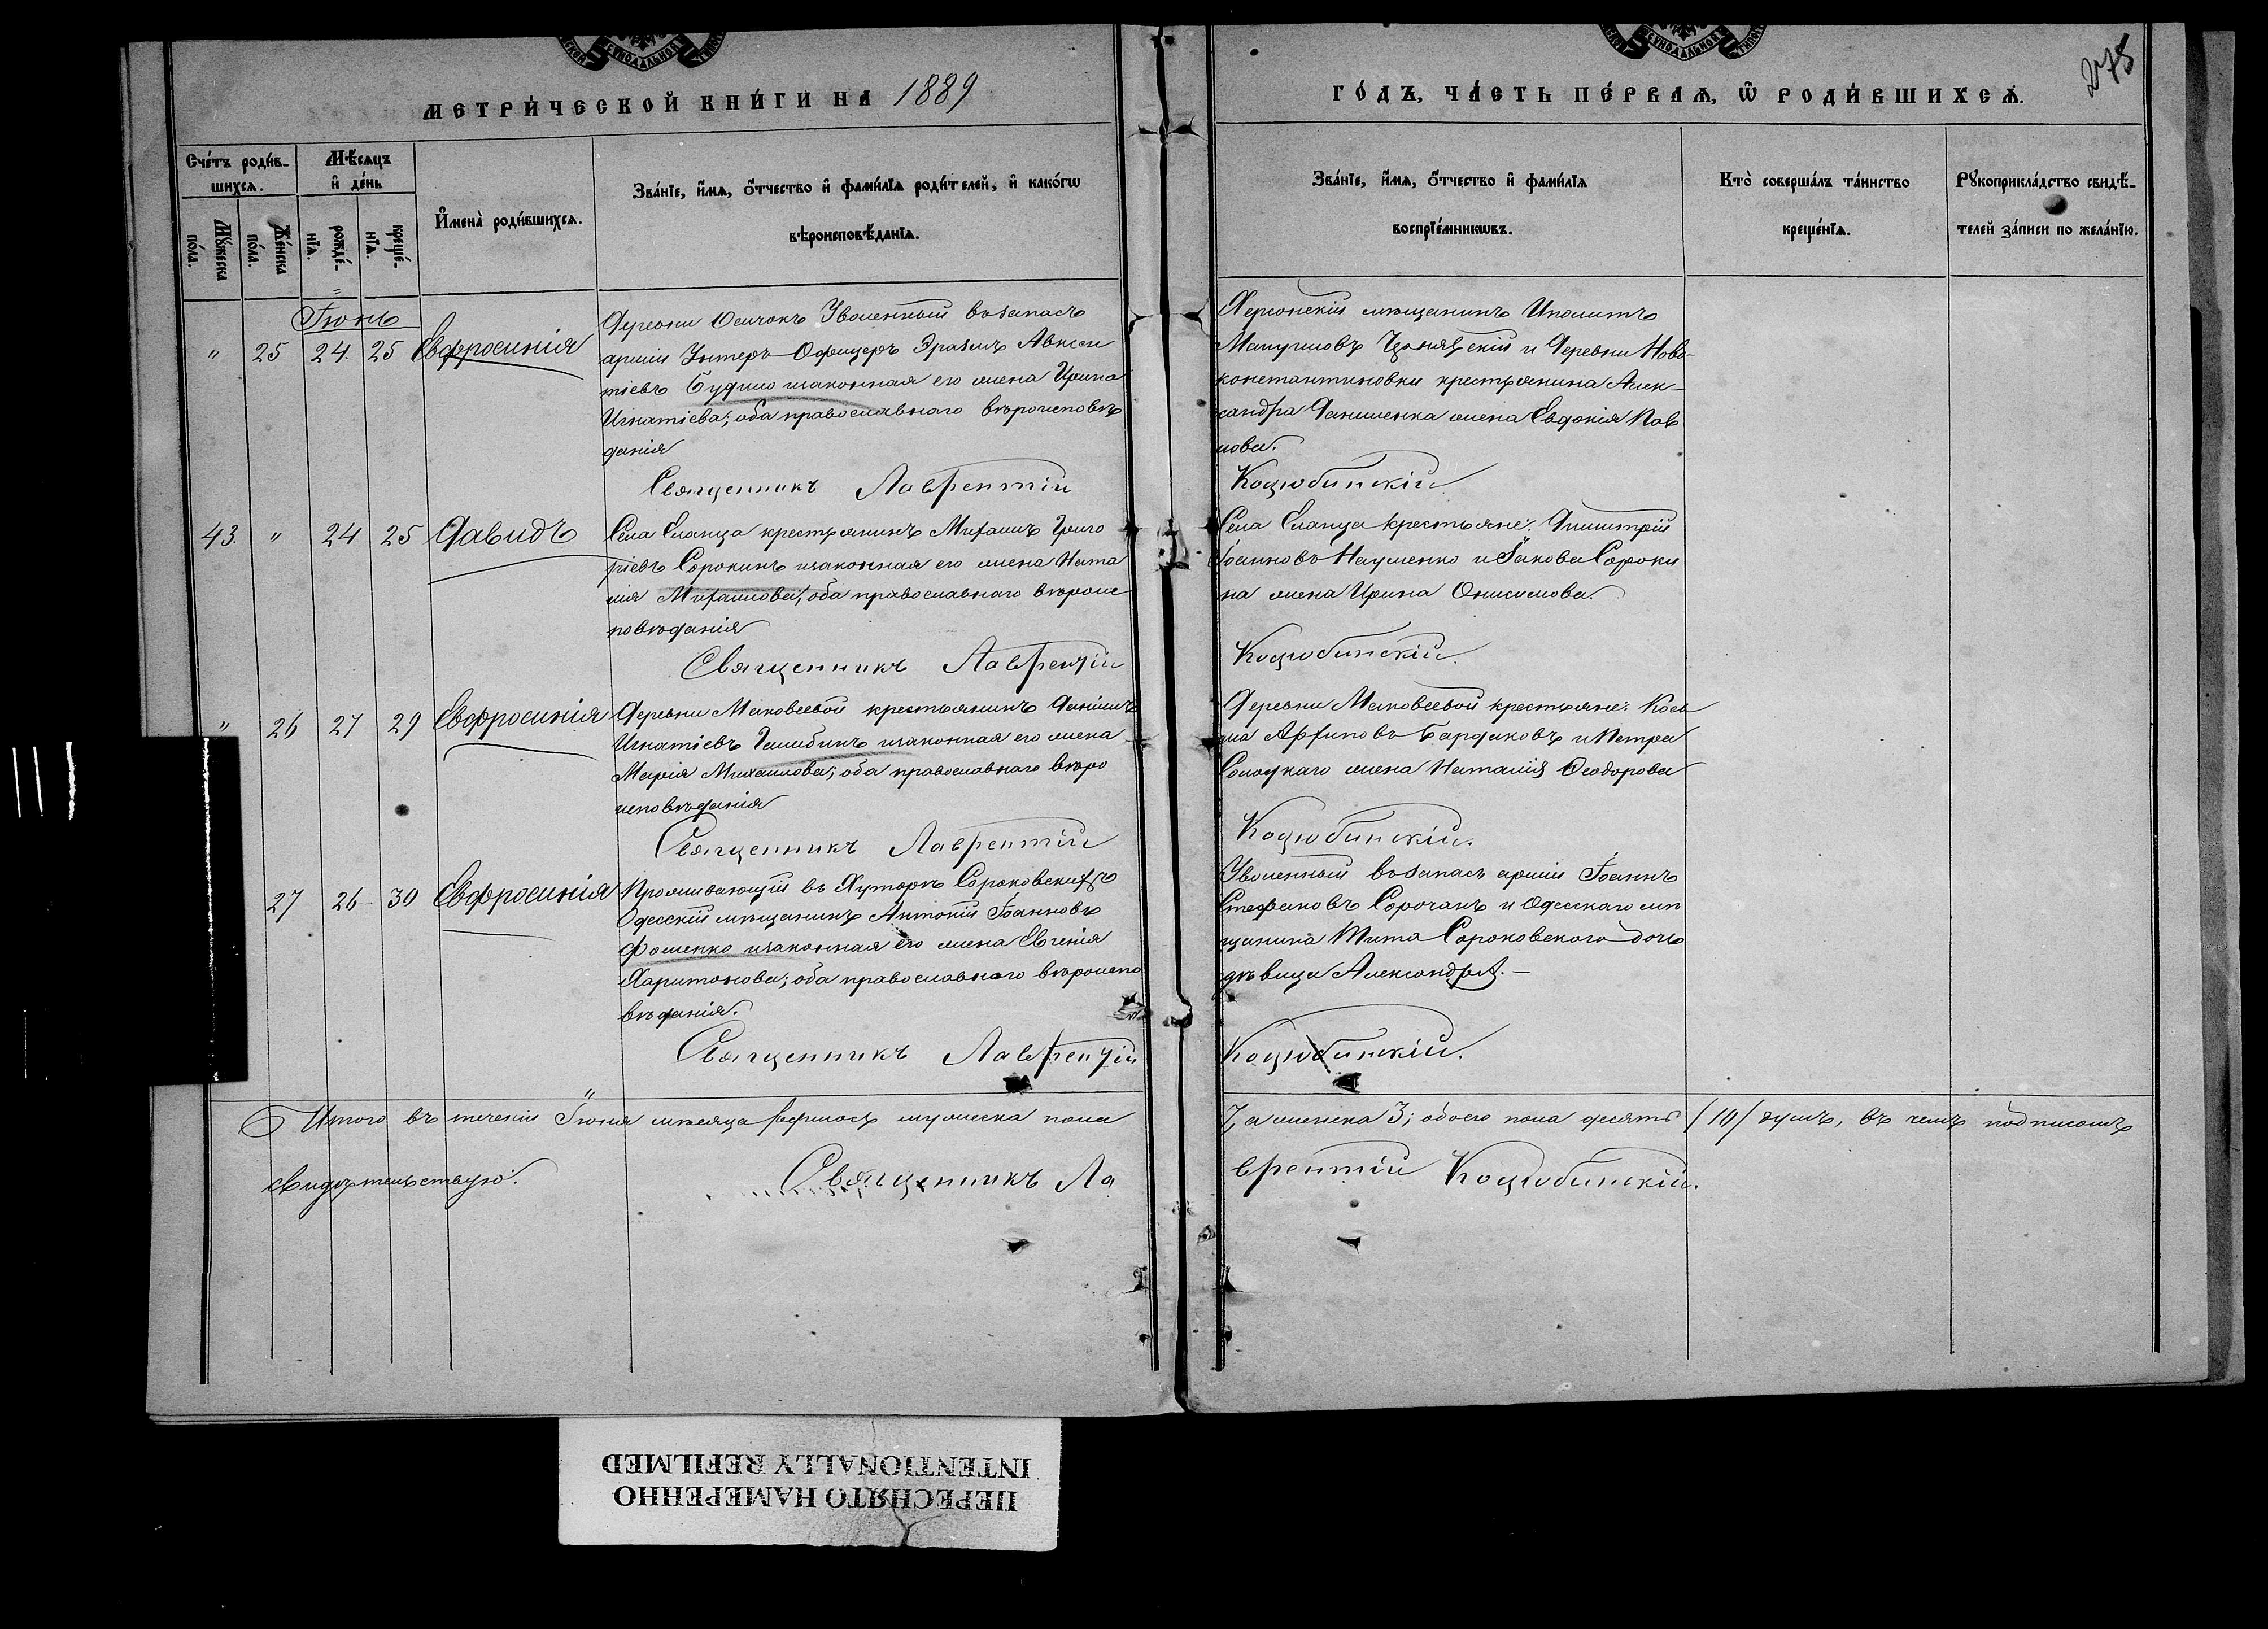 МЕТРИ́ЧЕСКОЙ КНИ́ГИ НА 1889
ГО́ДЪ, ЧА́СТЬ ПЕ́РВАѦ, Ѿ РОДИ́ВШИХСѦ.
275
Сче́тъ роди́в-
шихсѧ.
Мѣ́сѧцъ
и҆ де́нь
Мꙋ́жеска
по́ла.
Же́нска
по́ла.
рожде́-
нїѧ.
креще́-
нїѧ.
И҆мена̀ роди́вшихсѧ.
Зва́нїе, и҆́мѧ, ѻ҆́тчество и҆ фами́лїѧ роди́телей, и҆ како́гѡ
вѣроисповѣ́данїѧ.
Зва́нїе, и҆́мѧ, ѻ҆́тчество и҆ фами́лїѧ
воспрїе́мникѡвъ.
Кто̀ соверша́лъ та́инство
креще́нїѧ.
Рꙋкоприкла́дство свидѣ́-
телей за́писи по жела́нїю.
Іюнь
" 25 24. 25 Евфросинія
Деревни Осичокъ Уволенный въ запасъ
арміи Унтеръ-Офицеръ Эразмъ Авксен
тіевъ изаконная его жена Ирина
Игнатіева; оба православнаго вѣроисповѣ
данія
Священникъ Лаврентій
Херсонскій мѣщанинъ Иполитъ
и Деревни Ново-
константиновки крестьянина Алек-
сандра Даниленка жена Евдокія Пав
лова.
Коцюбинскій
43. " 24 25 Давидъ
Села Еланца крестьянинъ Михаилъ Григо
ріевъ Сорокинъ изаконная его жена Ната
лія Михайлова; оба православнаго вѣроис
повѣданія
Священникъ Лаврентій
Села Еланца крестьяне: Димитрій
Іоанновъ Науменко и Іакова Сороки
на жена Ирина Онисимова.
Коцюбинскій.
" 26 27 29 Евфросинія
Деревни Маковеевой крестьянинъ Даніилъ
Игнатіевъ изаконная его жена
Марія Михаилова; оба православнаго вѣро
исповѣданія
Священникъ Лаврентій
Деревни Маковеевой крестьяне: Косъ
ма Бардаковъ и Петра
Солоцкаго жена Наталія Ѳеодорова
Коцюбинскій.
27 26 30 Евфросинія
Проживающій въ Хуторѣ Сороковскихъ
Одесскій мѣщанинъ Антоній Іоанновъ
Фоменко изаконная его жена Евгенія
Харитонова; оба православнаго вѣроиспо
вѣданія.
Священникъ Лаврентій
Уволенный въ запасъ арміи Іоаннъ
Стефановъ Сорочанъ и Одесскаго мѣ
щанина Тита Сороковского дочь
дѣвица Александра.-
Коцюбинскій.
Итого въ теченіи Іюня мѣсяца родилось мужеска пола
7, а женска 3; обоего пола десять /10/ душъ, въ чемъ подписомъ
свидѣтельствую:
Священникъ Ла
врентій Коцюбинскій.
ПЕРЕСНЯТО НАМЕРЕННО
INTENTIONALLY REFILMED